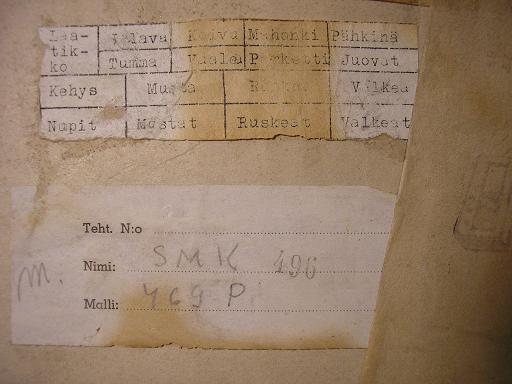 Laa- Vilava Koivu Mahonki Pähkinä
tik-
ko Tumma Vaalea Parketti Juovat
Kehys Musta Valkea
Nupit Mustat Ruskeat Valkeat
Teht. N:o
Nimi: SMK 496
m.
Malli: 469 P